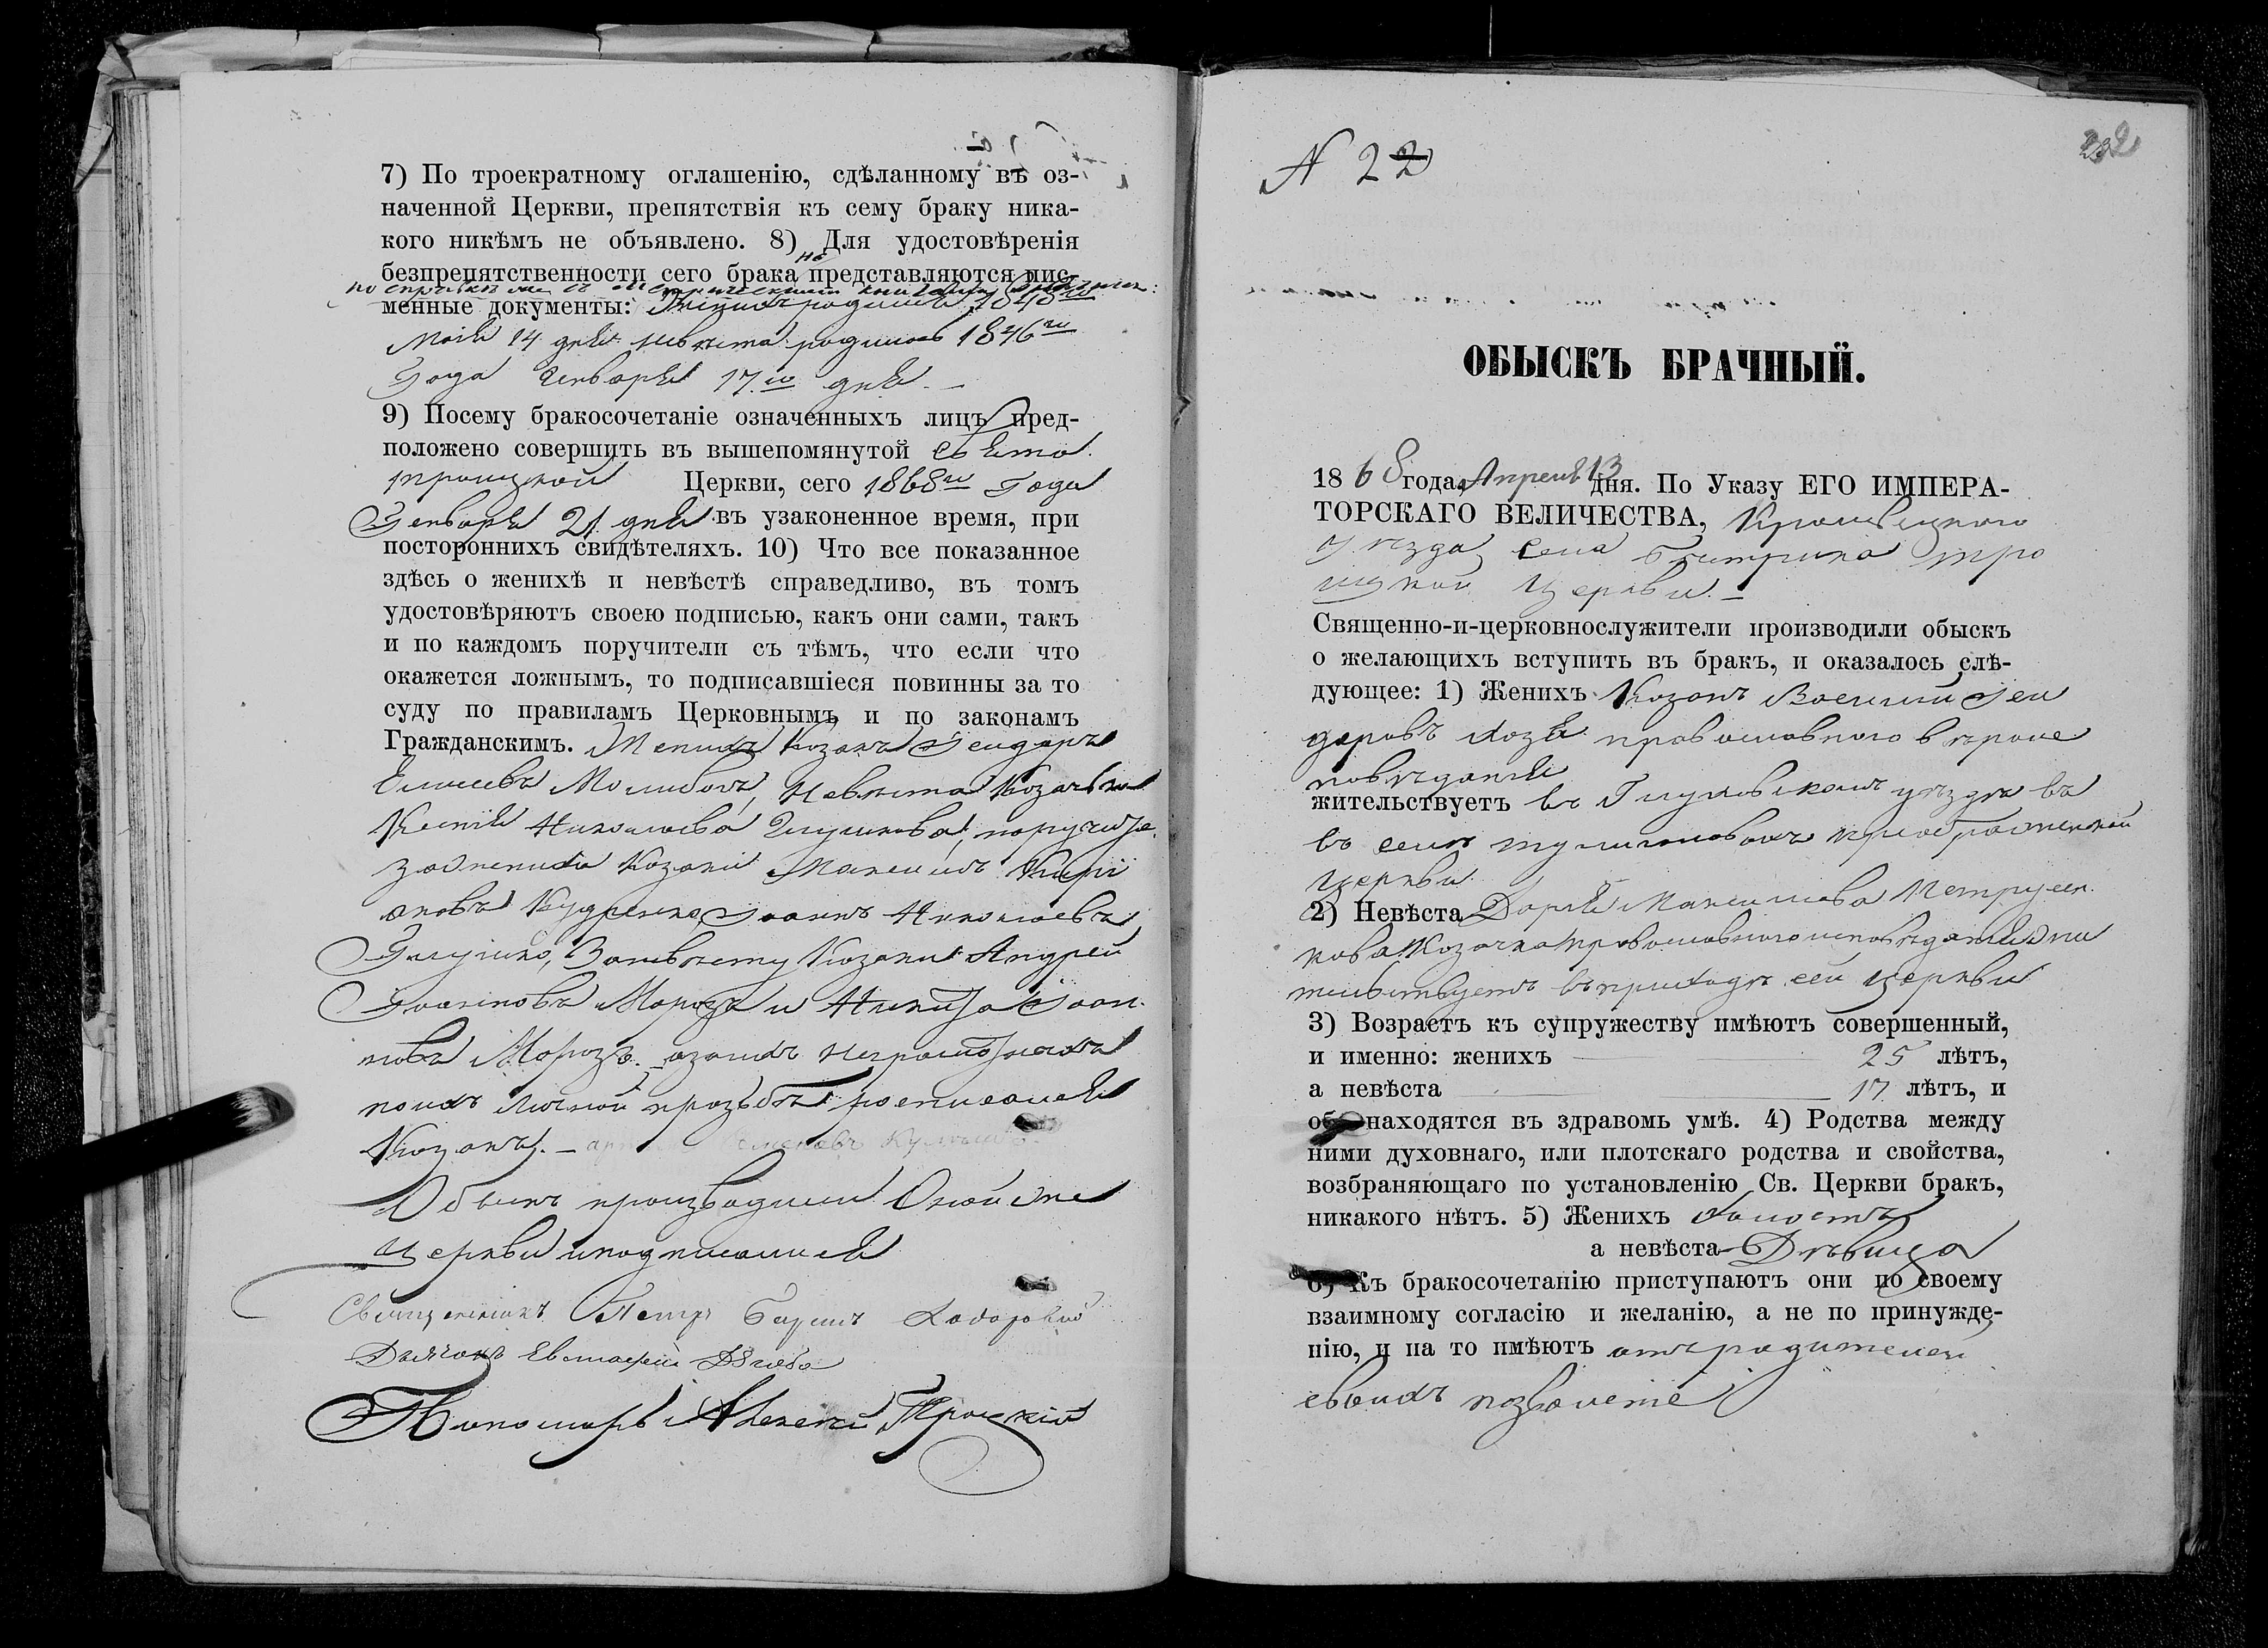 7) По троекратному оглашенію, сдѣланному въ оз-
наченной Церкви, препятствія къ сему браку ника-
кого никѣмъ не объявлено. 8) Для удостовѣренія
безпрепятственности сего брака не представляются пис-
по справкѣ же съ метрическими книгами
менные документы: Женихъ родился 1848го
Маія 14 дня невѣста родилась 1846го
Года Генваря 17.го дня. —
9) Посему бракосочетаніе означенныхъ лицъ пред-
положено совершить въ вышепомянутой Свято
троицкой Церкви, сего 1868го Года
Генваря 21 дня въ узаконенное время, при
постороннихъ свидѣтеляхъ. 10) Что все показанное
здѣсь о женихѣ и невѣстѣ справедливо, въ томъ
удостовѣряютъ своею подписью, какъ они сами, такъ
и по каждомъ поручители съ тѣмъ, что если что
окажется ложнымъ, то подписавшіеся повинны за то
суду по правиламъ Церковнымъ и по законамъ
Гражданскимъ. Женихъ Козакъ
Елисеевъ невѣста Козачка
Ксенія Николаева Глушкова, поручите.
за жениха Козаки Максимъ Кирі
аковъ Кудренко, Іоаннъ Николаевъ
Глушко, За невѣсту Козаки Андрей
Іоанновъ Морозъ и Никита Іоан-
новъ Морозъ. — азанихъ неграмотныхъ
поихъ личной прозьбѣ росписался
Козакъ. —
Обыскъ производили Оной же
Церкви иподписалися
Священникъ Петръ
Дьячокъ Евстафій
Пономарь Алексѣй Троцкій
N 22
ОБЫСКЪ БРАЧНЫЙ.
1868 года Апреля 13 дня. По Указу ЕГО ИМПЕРА-
ТОРСКАГО ВЕЛИЧЕСТВА, Кролевецкого
уезда, Села Быстрика Тро
ицкой Церкви. —
Священно-и-церковнослужители производили обыскъ
о желающихъ вступить въ бракъ, и оказалось слѣ-
дующее: 1) Женихъ Козакъ Василій
православного вѣроис
повѣданія
жительствуетъ въ Глуховскомъ уѣздѣ въ
въ селѣ
Церкви
2) Невѣста Дарія Максимова Петрусен
кова Козачка православного исповѣданія жи
тельствуетъ въ приходѣ сей церкви
3) Возрастъ къ супружеству имѣютъ совершенный,
и именно: женихъ 25 лѣтъ,
а невѣста 17 лѣтъ, и
находятся въ здравомъ умѣ. 4) Родства между
ними духовнаго, или плотскаго родства и свойства,
возбраняющаго по установленію Св. Церкви бракъ,
никакого нѣтъ. 5) Женихъ холостъ
а невѣста Дѣвица
6) Къ бракосочетанію приступаютъ они по своему
взаимному согласію и желанію, а не по принужде-
нію, и на то имѣютъ отъ родителей
своихъ позволеніе